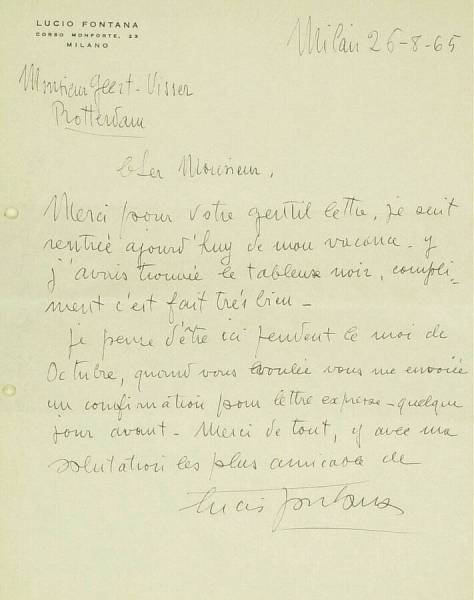 LUCIO FONTANA
CORSO MONFORTE, 23
MILANO
Milan 26-8-65
Monsieur Geert-Visser
Rotterdam
Cher Monsieur,
Merci pour votre gentil lettre, je suit
rentrée ajourd'huy de mon vacance - y
j'avris trouvée le tableux noir, compli-
ment c'est fait trés bien -
je pense d'être ici pendent le moi de
Octubre, quand vous voulée vous me envoiée
un confirmation pour lettre expresse - quelque
jour avant - Merci de tout, y avec ma
salutation les plus amicave de
Lucio Fontana